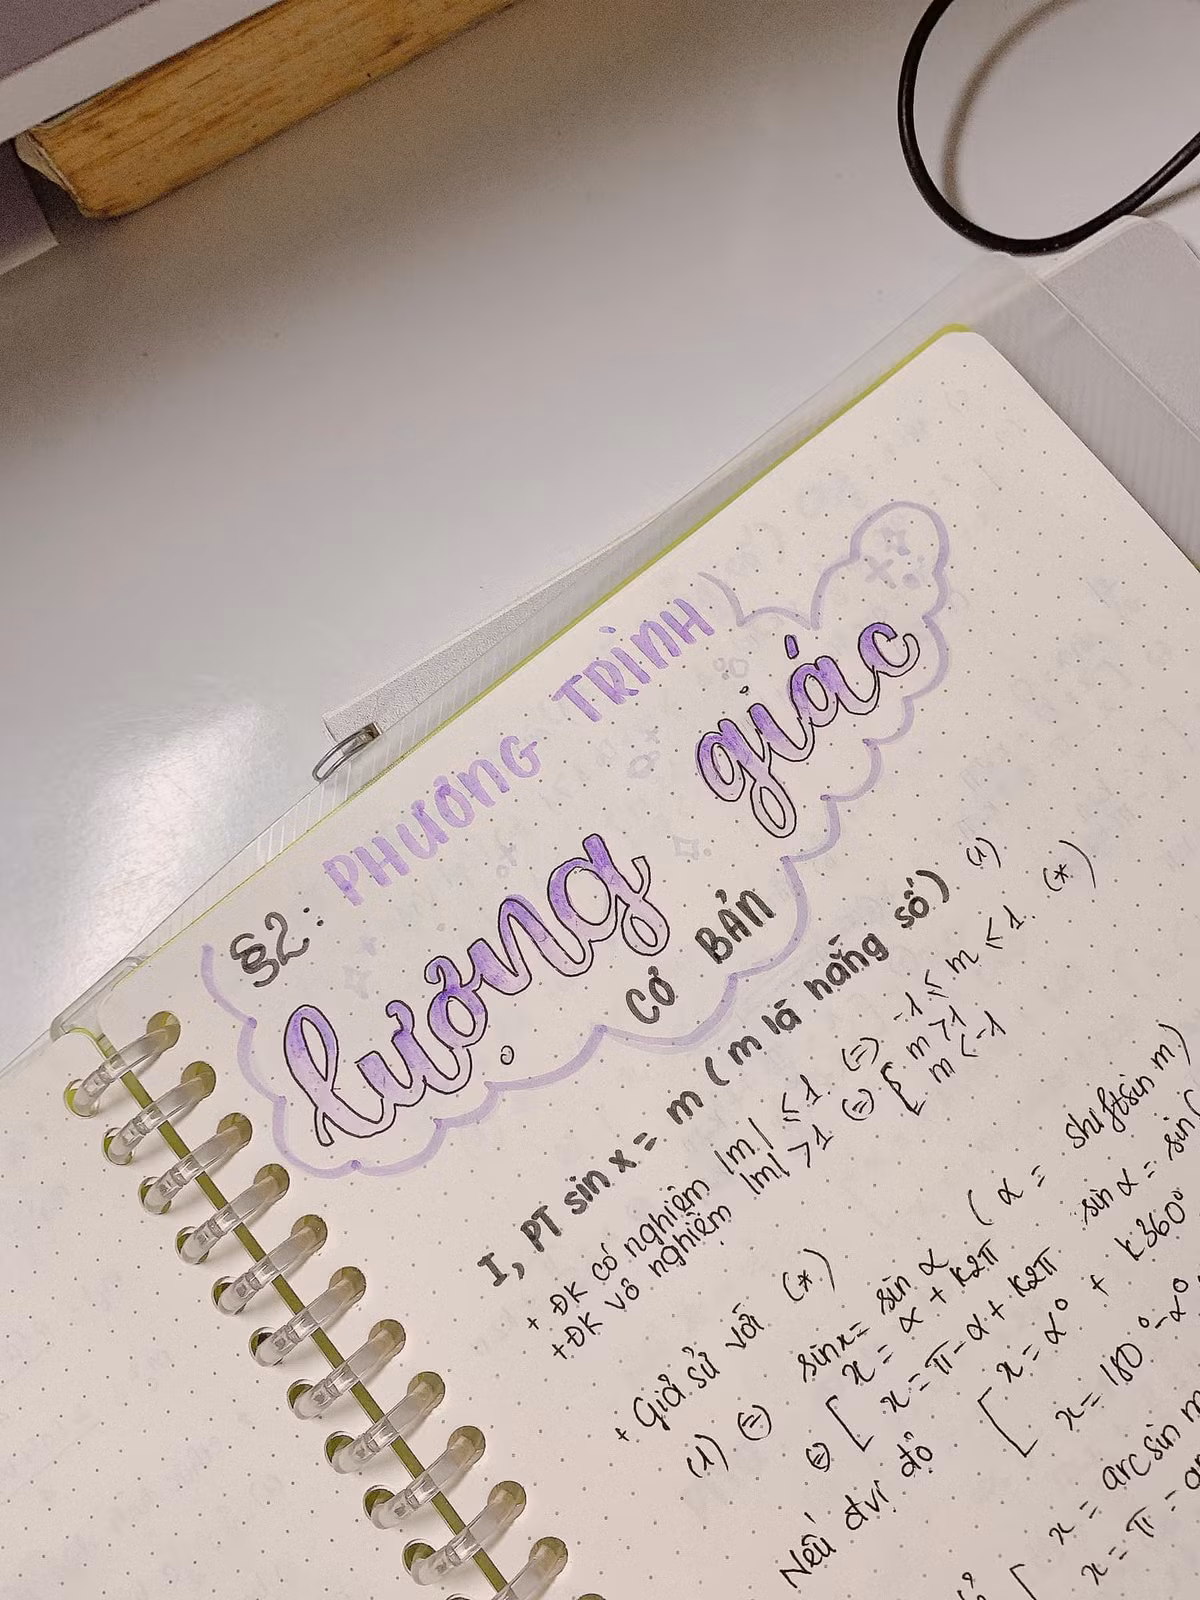 §2: PHƯƠNG TRÌNH
lượng giác
CƠ BẢN
I, PT sin x = m (m là hằng số) (1)
+ ĐK có nghiệm |m| ≤ 1 (=) -1 ≤ m ≤ 1 (*)
+ ĐK vô nghiệm |m| > 1 (=) [ m > 1
m < -1
+ Giả sử với (*)
(1) (=) sin x = sin α (α = shift sin m)
(=) [ x = α + k2π sin α = sin(
x = π - α + k2π
Nếu đvị độ [ x = α° + k360°
x = 180° - α°
[ x = arc sin m
x = π - ar